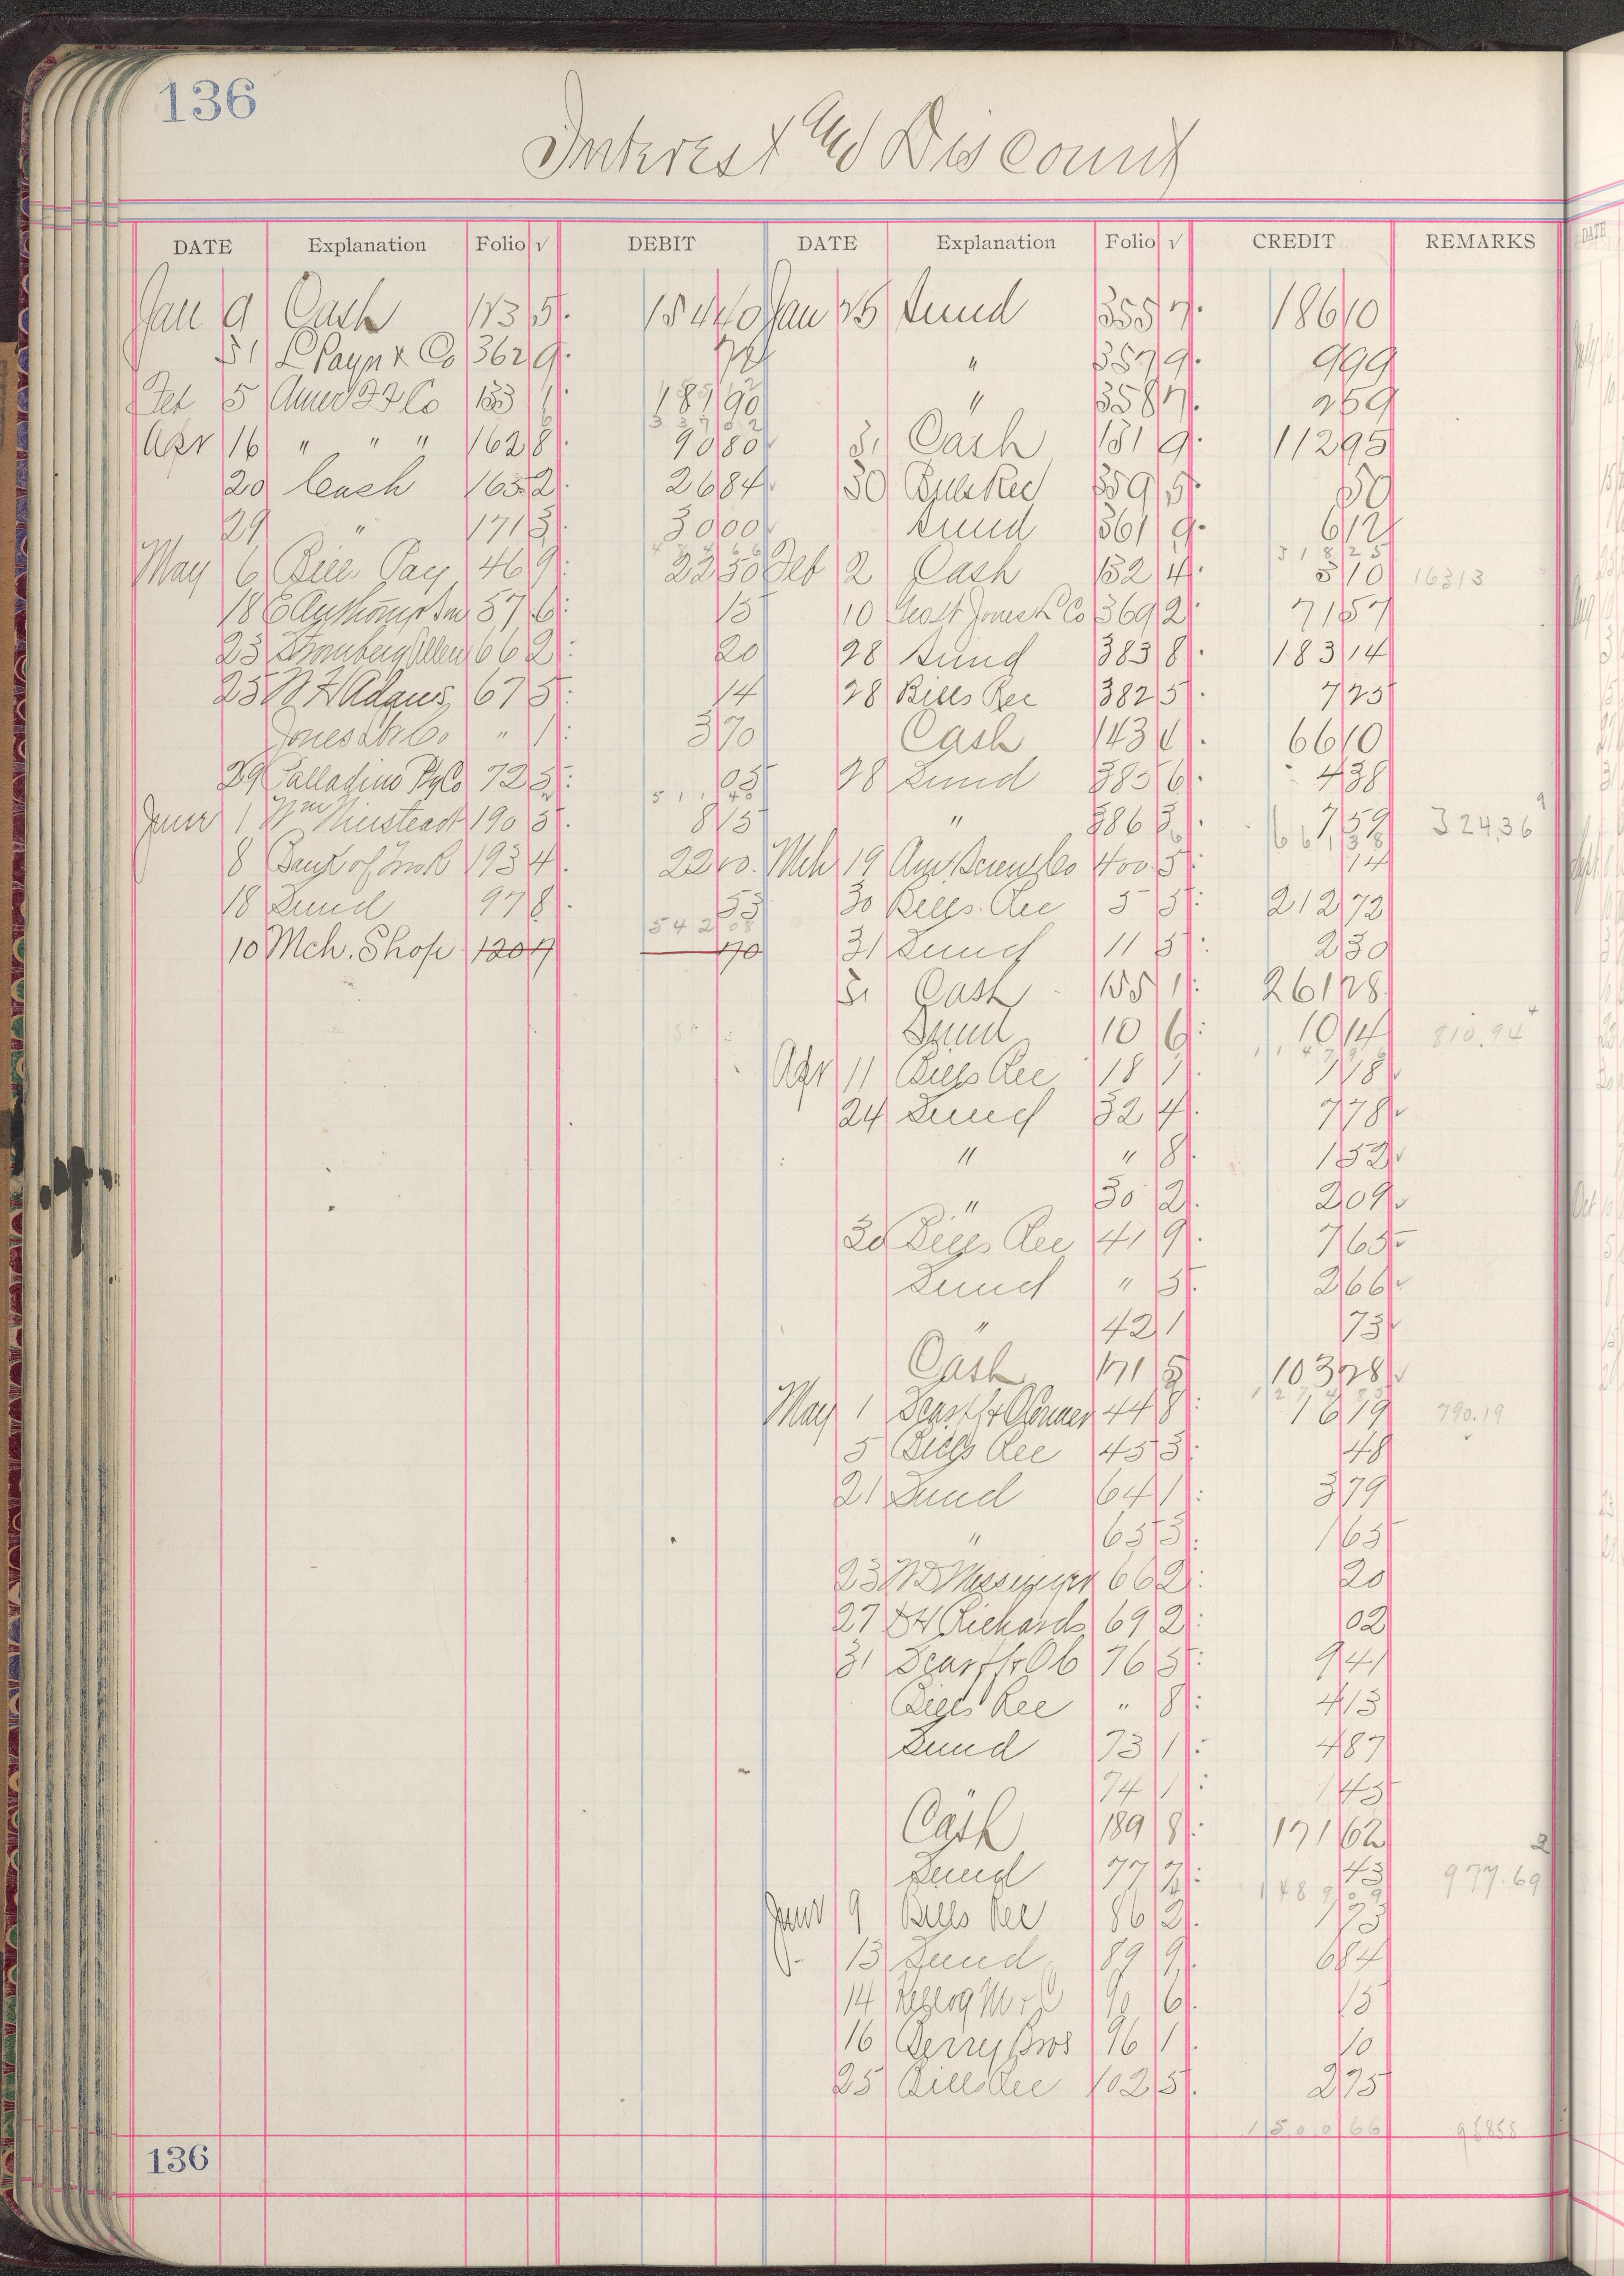 136
Interest and Discount
DATE Explanation Folio √ DEBIT DATE Explanation Folio √ CREDIT REMARKS
Jan 9 Cash 173 5 154 40 Jan 25 Sund 355 7 186 10
31 L Payn & Co 362 9 " 357 9 9 99
Feb 5 Amer Co 133 1 187 90 " 358 7 2 59
Apr 16 " " " 162 8 90 80 31 Cash 131 9 112 95
20 Cash 163 2 26 84 30 Bills Rec 359 5 50
29 " 171 3 30 00 Sund 361 9 6 12
May 6 Bills Pay 46 9 22 50 Feb 2 Cash 132 4 5 10 16313
18 57 6 15 10 Jones & Co 369 2 71 57
23 Stromberg Allen 66 2 20 28 Sund 383 8 183 14
25 Adams 67 5 14 28 Bills Rec 382 5 7 25
Jones " 1 3 70 Cash 143 1 66 10
29 Palladino Co 72 5 28 Sund 385 6 4 38
June 1 Wm 190 5 8 15 " 386 7 59 324.36
8 Bank of 193 4 22 10 Mch 19 400 5 14
18 Sund 97 8 53 30 Bills Rec 5 5 212 72
542 08
10 Mch. Shop 120 7 1 70 31 Sund 11 5 2 30
31 Cash 155 1 261 28
Sund 10 6 10 14 810.94
Apr 11 Bills Rec 18 1 7 18
24 Sund 32 4 7 78
" " 8 1 52
" 30 2 2 09
30 Bills Rec 41 9 7 65
Sund " 5 2 66
" 42 1 73
Cash 171 5 103 78
May 1 44 8 16 19 790.19
5 Bills Rec 45 3 48
21 Sund 64 1 3 79
" 65 3 1 65
23 Messenger 66 2 20
27 Richards 69 2 02
31 76 5 9 41
Bills Rec " 8 4 13
Sund 73 1 4 87
" 74 1 1 45
Cash 189 8 171 62
Sund 77 7 43 977.69
June 9 Bills Rec 86 2 1 75
13 Sund 89 9 6 84
14 90 6 15
16 Berry Bros 96 1 10
25 Bills Rec 102 5 2 75
1500 66
136